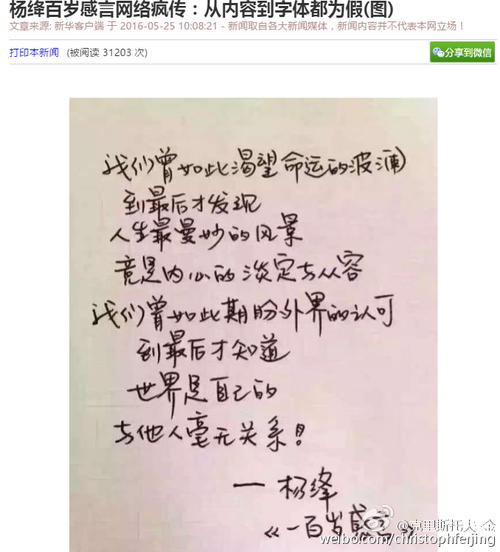 杨绛百岁感言网络疯传：从内容到字体都为假(图)
文章来源: 新华客户端 于 2016-05-25 10:08:21 - 新闻取自各大新闻媒体，新闻内容并不代表本网立场！
打印本新闻 (被阅读 31203 次)
分享到微信
我们曾如此渴望命运的波澜
到最后才发现
人生最曼妙的风景
竟是内心的淡定与从容
我们曾如此期盼外界的认可
到最后才知道
世界是自己的
与他人毫无关系！
— 杨绛
《一百岁感言》
@克里斯托夫-金
weibo.com/christophferjing